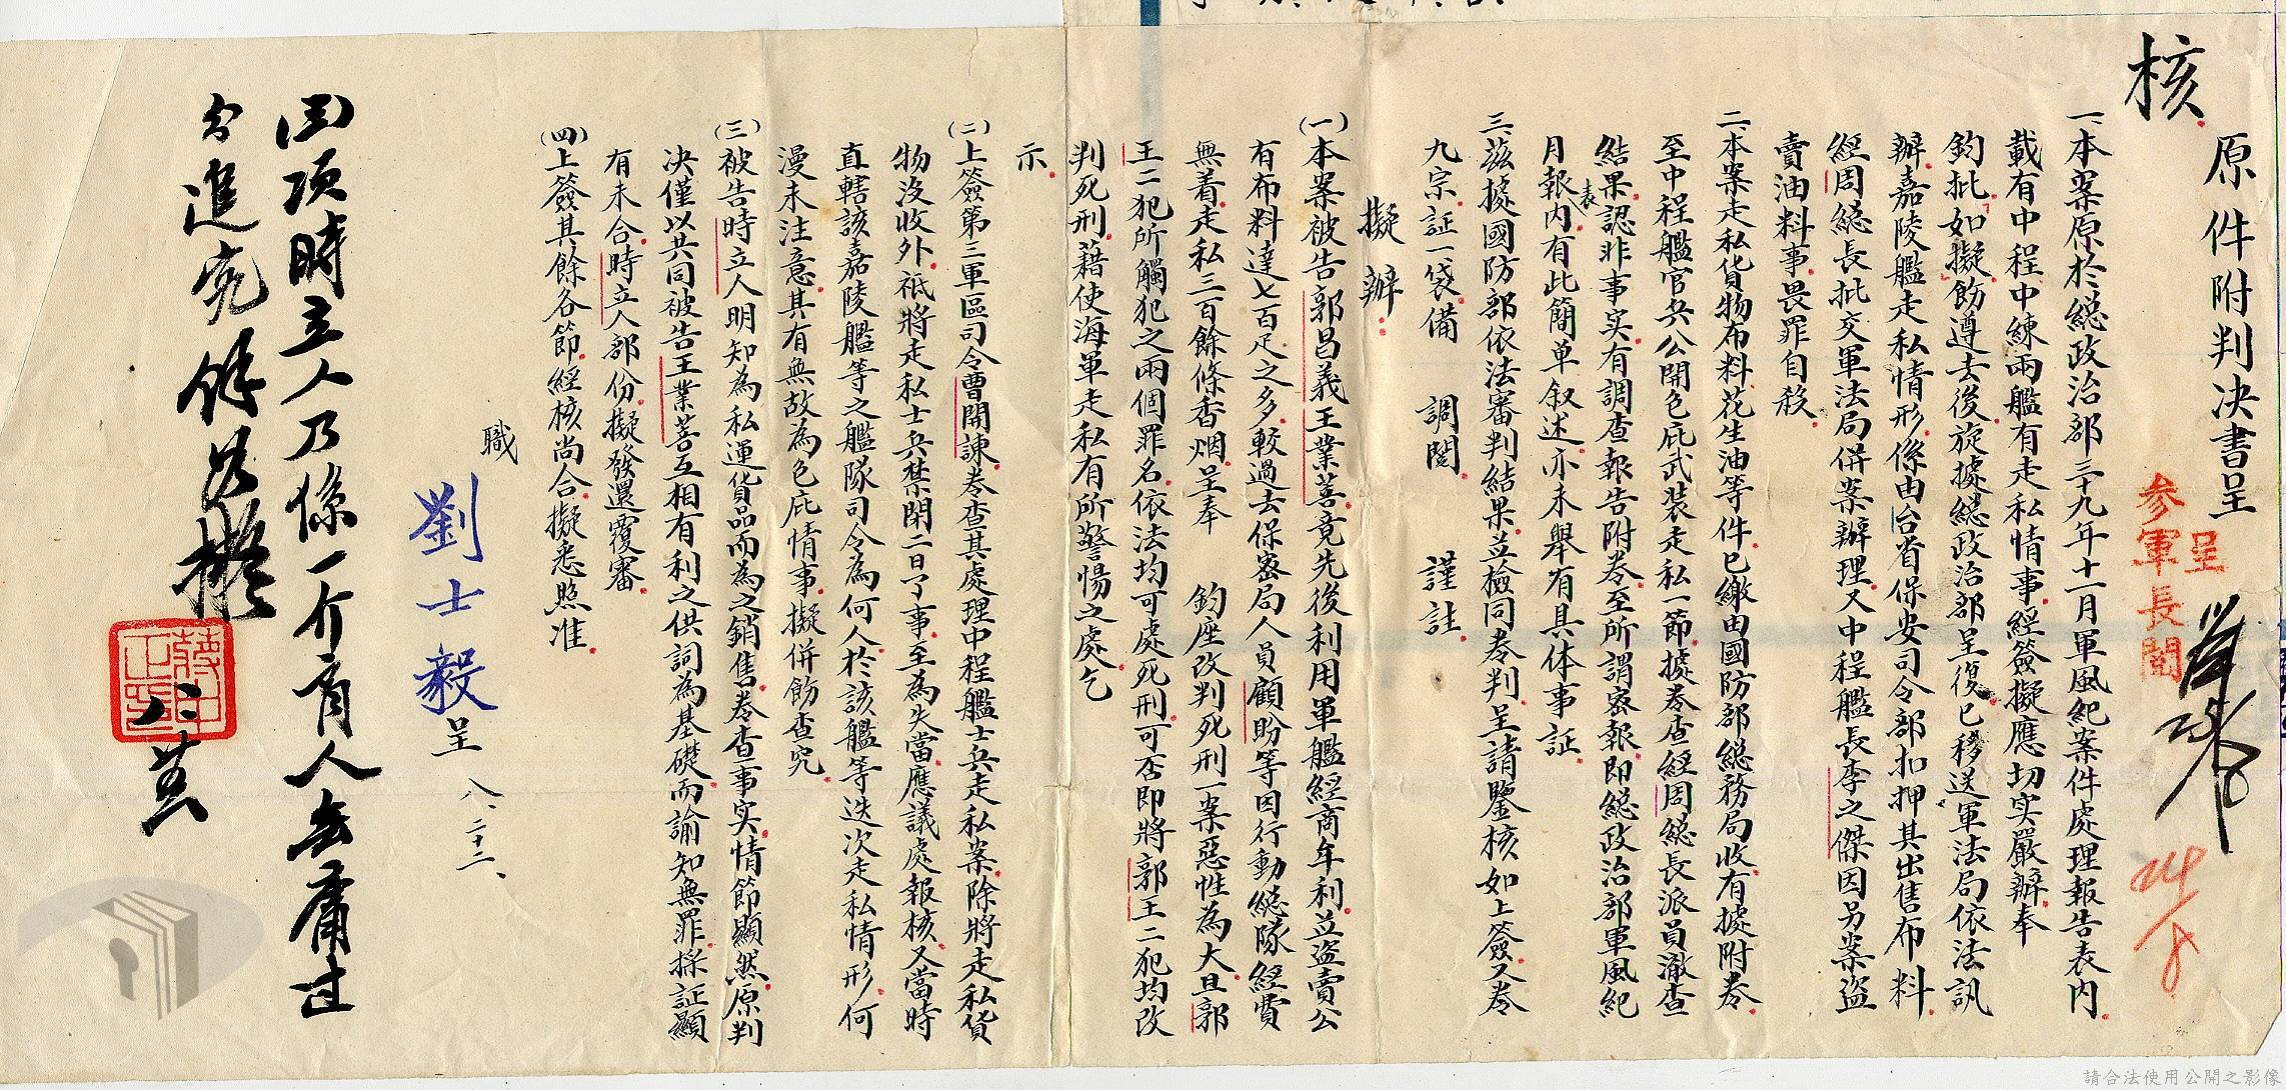 原件附判決書呈
核
呈
參軍長閱
一、本案原於總政治部三十九年十一月軍風紀案件處理報告表內
載有中程中練兩艦有走私情事經簽擬應切实嚴辦奉
鈞批如擬飭遵去後旋據總政治部呈復已移送軍法局依法訊
辦嘉陵艦走私情形係由台省保安司令部扣押其出售布料
經周總長批交軍法局併案辦理又中程艦長李之傑因另案盜
賣油料事畏罪自殺
二、本案走私貨物布料花生油等件已繳由國防部總務局收有據附卷
至中程艦官兵公開包庇武裝走私一節據卷查經周總長派員澈查
結果認非事实有調查報告附卷至所謂密報即總政治部軍風紀
月報表內有此簡单叙述亦未舉有具体事証
三、茲據國防部依法審判結果並檢同卷判呈請鑒核如上簽又卷
九宗証一袋備 調閱 謹註
擬辦
(一)本案被告郭昌義王業菩竟先後利用軍艦經商牟利並盜賣公
有布料達七百疋之多較過去保密局人員顧盼等因行動總隊經費
無着走私三百餘條香烟呈奉 鈞座改判死刑一案惡性為大且郭
王二犯所觸犯之兩個罪名依法均可處死刑可否即將郭王二犯均改
判死刑藉使海軍走私有所警惕之處乞
示
(二)上簽第三軍區司令曹開諫卷查其處理中程艦士兵走私案除將走私貨
物沒收外祗將走私士兵禁閉二日了事至為失當應議處報核又當時
直轄該嘉陵艦等之艦隊司令為何人於該艦等迭次走私情形何
漫未注意其有無故為包庇情事擬併飭查究
(三)被告時立人明知為私運貨品而為之銷售卷查事实情節顯然原判
決僅以共同被告王業菩互相有利之供詞為基礎而諭知無罪採証顯
有未合時立人部份擬發還覆審
(四)上簽其餘各節經核尚合擬悉照准
職
劉士毅呈 八、二十二、
(三)項時立人乃係一介商人無庸過
分追究餘如擬
蔣中正印
請合法使用公開之影像